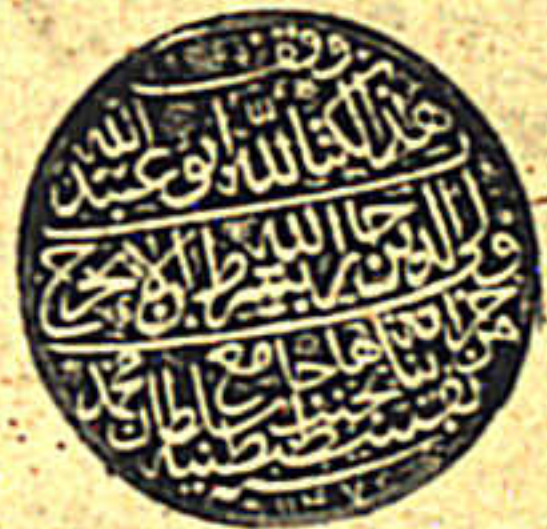 وقف
هذا الكتاب لله ابو عبد الله
ولى الدين جار الله بشرط ان لا يخرج
من خزانة بناها بجنب جامع سلطان محمد
بقسطنطينيه